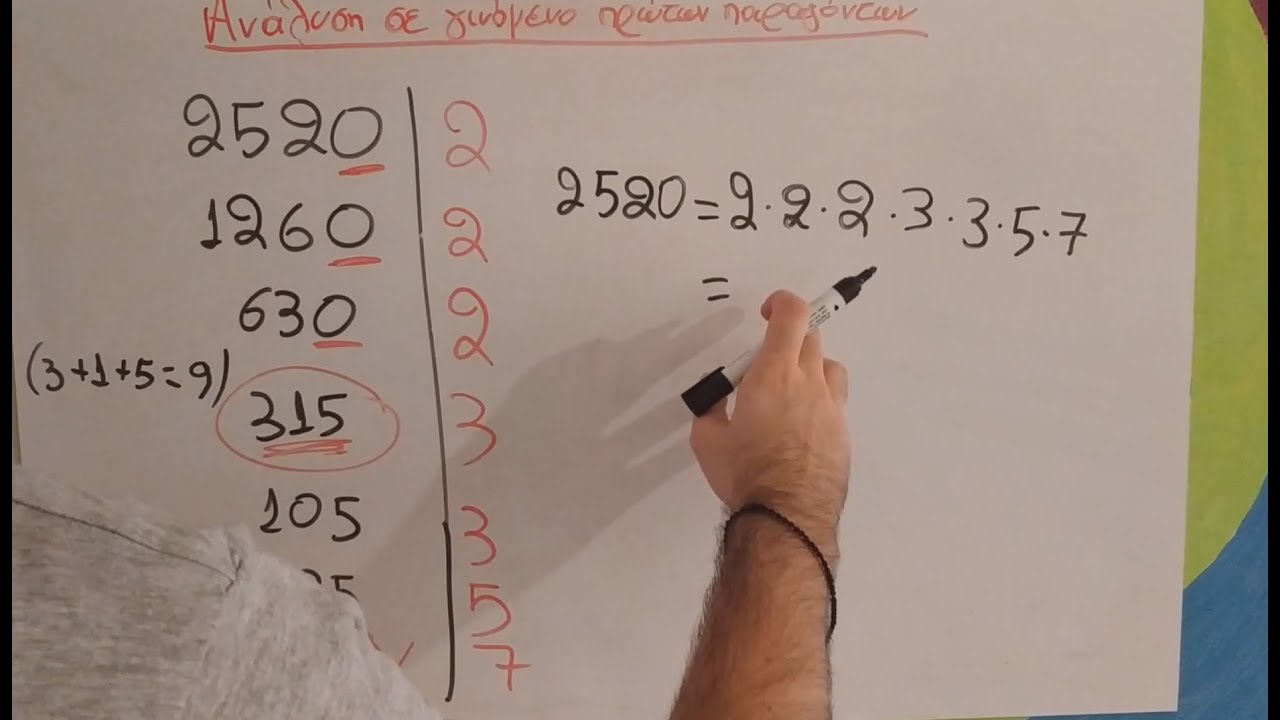 Ανάλυση σε γινόμενο πρώτων παραγόντων
2520 | 2
1260 | 2
630 | 2
(3+1+5=9) 315 | 3
105 | 3
5 | 5
7
2520 = 2·2·2·3·3·5·7
=